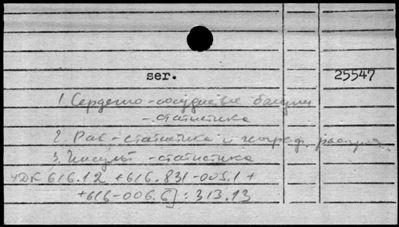 ser. 25547
1. Сердечно-сосудистые болезни
- статистика
2. Рак - статистика и географ. распр.
3. Инсульт - статистика
УДК 616.12 + 616.831-005.1 +
+ 616-006.6] : 313.13